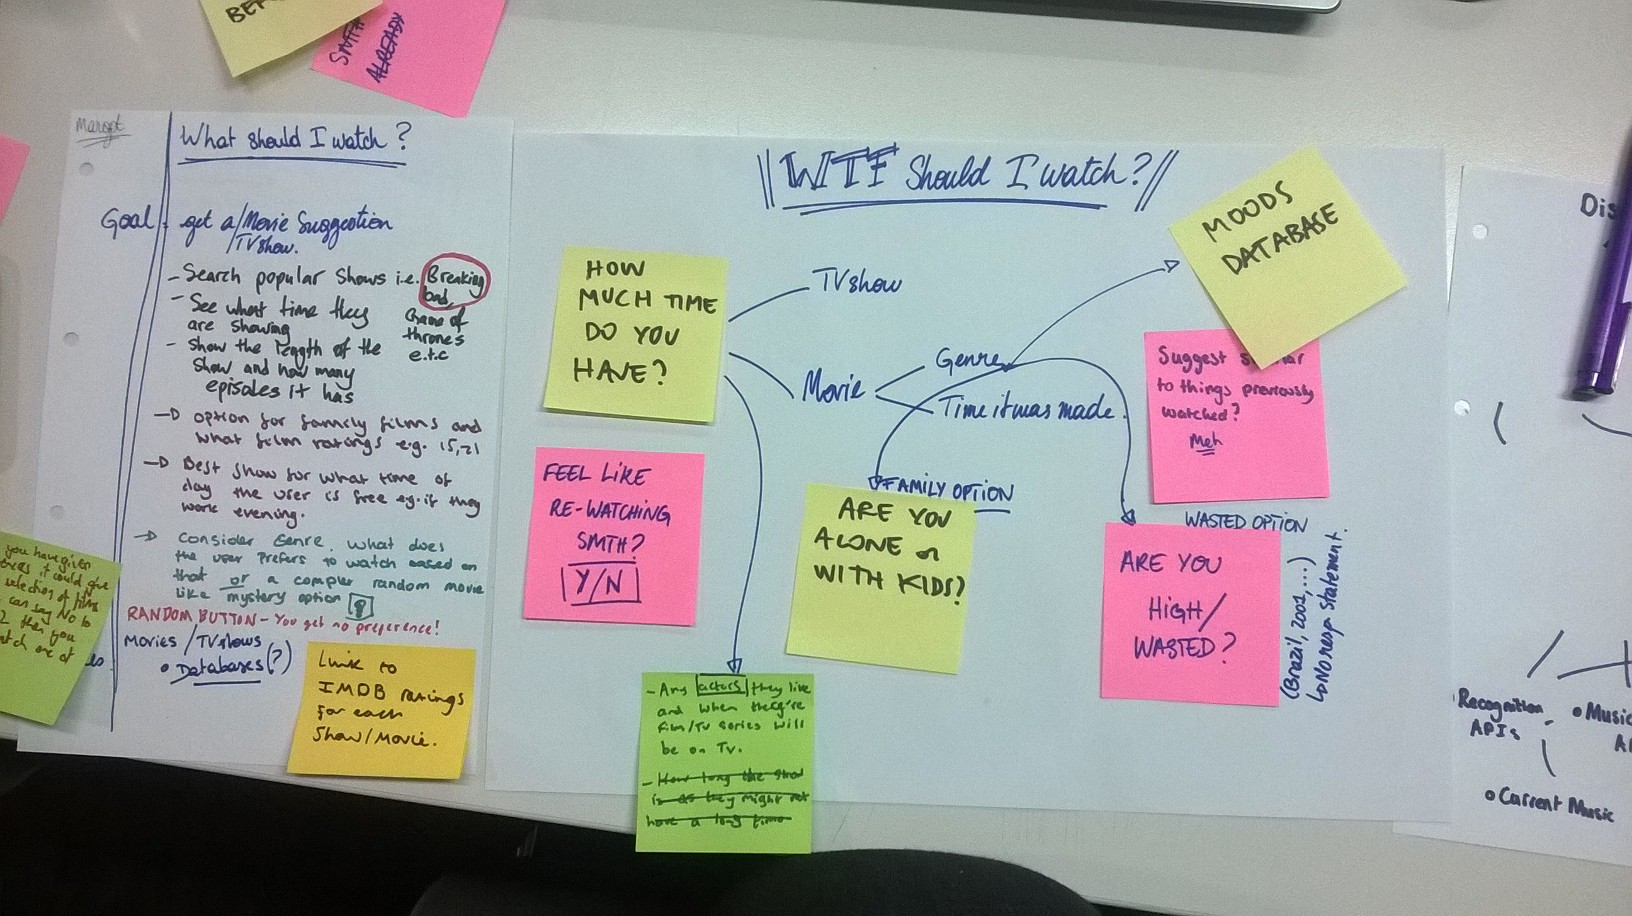 SMTH
ALREADY
Margot
What should I watch?
Goal - get a/Movie Suggestion
/TV show.
- Search popular shows i.e. Breaking
bad,
Game of
thrones
e.t.c
- See what time they
are showing
- Show the length of the
show and how many
episodes it has
→ option for family films and
what film ratings e.g. 15, 21
→ Best show for what time of
day the user is free e.g. if they
work evening.
→ Consider Genre. What does
the user prefers to watch based on
that or a compler random movie
like mystery option ?
RANDOM BUTTON - You get no preference!
Movies / TV shows
• Databases (?)
you have given
it could give
selection of films
can say No to
2 then you
one of
Link to
IMDB ratings
for each
Show/Movie.
WTF Should I watch?
HOW
MUCH TIME
DO YOU
HAVE?
TV show
Movie
Genre
Time it was made.
MOODS
DATABASE
Suggest
to things previously
watched?
Meh
FEEL LIKE
RE-WATCHING
SMTH?
Y/N
FAMILY OPTION
ARE YOU
ALONE or
WITH KIDS?
WASTED OPTION
ARE YOU
HIGH/
WASTED?
(Brazil, 2001, ...)
↳ No resp. statement.
- Any actors they like
and when they're
film/TV series will
be on TV.
- How long the show
is as they might not
have a long time
Dis
• Recognition
APIs
• Music
• Current Music